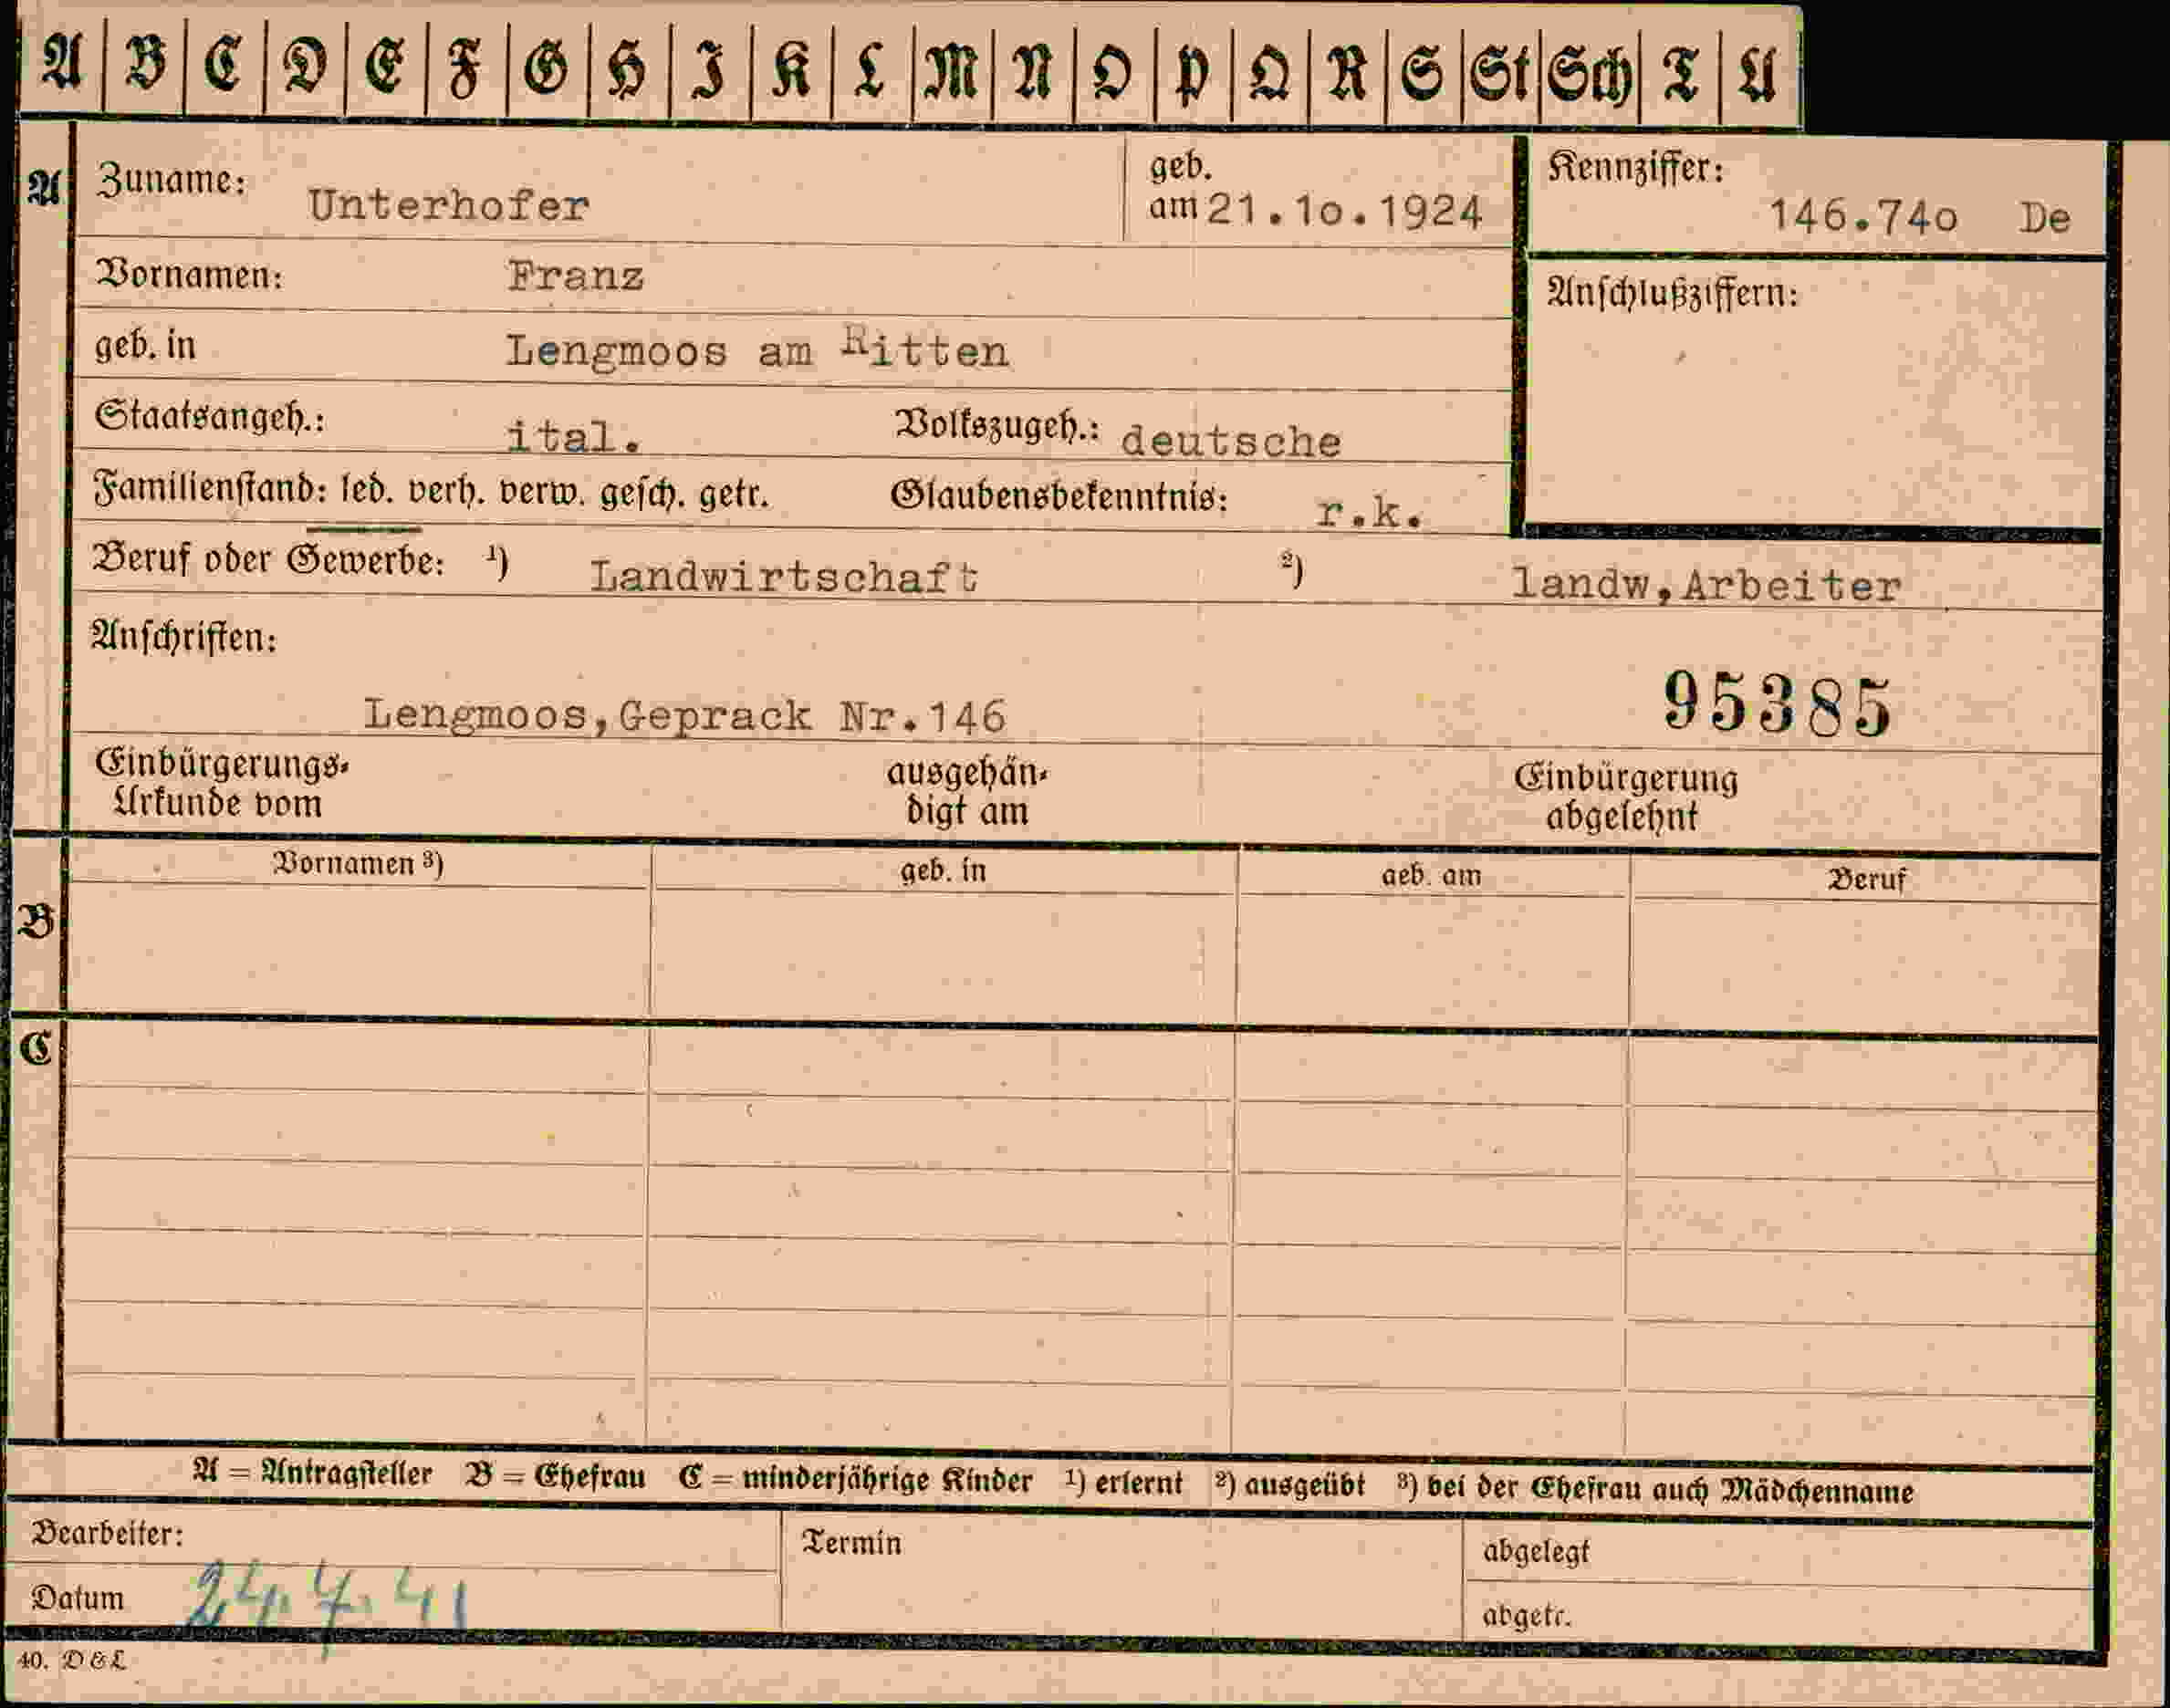 A B C D E F G H I K L M N O P Q R S St Sch T U
A Zuname: Unterhofer geb. am 21.10.1924 Kennziffer: 146.740 De
Vornamen: Franz
Anschlußziffern:
geb. in Lengmoos am Ritten
Staatsangeh.: ital. Volkszugeh.: deutsche
Familienstand: led. verh. verw. gesch. getr. Glaubensbekenntnis: r.k.
Beruf oder Gewerbe: ¹) Landwirtschaft ²) landw,Arbeiter
Anschriften:
Lengmoos,Geprack Nr.146 95385
Einbürgerungs- Urkunde vom ausgehän- digt am Einbürgerung abgelehnt
Vornamen ³) geb. in geb. am Beruf
B
C
A = Antragsteller B = Ehefrau C = minderjährige Kinder ¹) erlernt ²) ausgeübt ³) bei der Ehefrau auch Mädchenname
Bearbeiter: Termin abgelegt
Datum 24.7.41 abgetr.
40. D & L